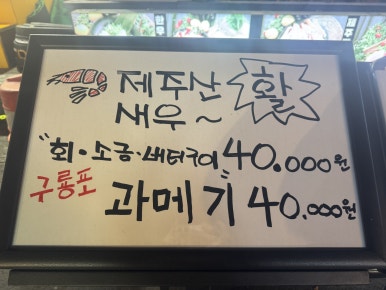 제주산 활
새우~
"회·소금·버터구이" 40.000원
구룡포 과메기 40.000원